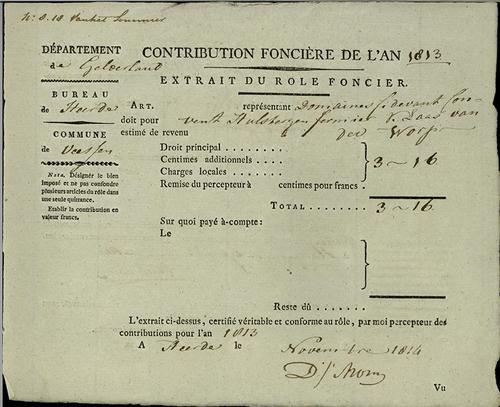 N: 8.18
DÉPARTEMENT
de Gelderland
BUREAU
de Heerde
COMMUNE
de Veessen
NOTA. Désigner le bien
imposé et ne pas confondre
plusieurs articles du rôle dans
une seule quittance.
Etablir la contribution en
valeur francs.
CONTRIBUTION FONCIÈRE DE L'AN 1813
EXTRAIT DU ROLE FONCIER.
ART. représentant Domaines ci devant Con-
doit pour vent Hulsbergen fermier van
estimé de revenu der Worp
Droit principal
Centimes additionnels
Charges locales
3 ~ 16
Remise du percepteur à centimes pour francs.
TOTAL 3 ~ 16
Sur quoi payé à-compte:
Le
Reste dû
L'extrait ci-dessus, certifié véritable et conforme au rôle, par moi percepteur des
contributions pour l'an 1813
A Heerde le Novembre 1814
Vu